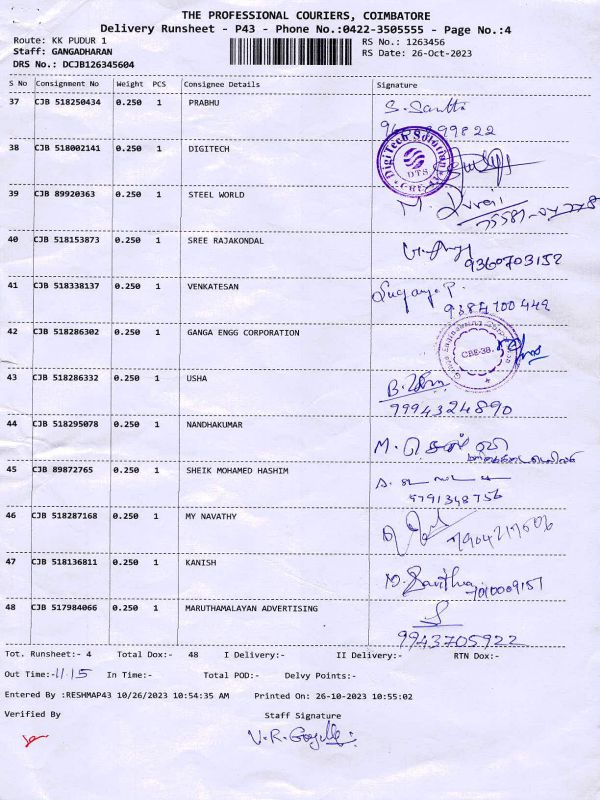 THE PROFESSIONAL COURIERS, COIMBATORE
Delivery Runsheet - P43 - Phone No.:0422-3505555 - Page No.:4
Route: KK PUDUR 1
RS No.: 1263456
Staff: GANGADHARAN
RS Date: 26-Oct-2023
DRS No.: DCJB126345604
S No Consignment No Weight PCS Consignee Details Signature
37 CJB 518250434 0.250 1 PRABHU
38 CJB 518002141 0.250 1 DIGITECH
DigiTech Solution
DTS
CBE
39 CJB 89920363 0.250 1 STEEL WORLD
40 CJB 518153873 0.250 1 SREE RAJAKONDAL
9360703152
41 CJB 518338137 0.250 1 VENKATESAN
42 CJB 518286302 0.250 1 GANGA ENGG CORPORATION
CBE-38.
43 CJB 518286332 0.250 1 USHA
9994324890
44 CJB 518295078 0.250 1 NANDHAKUMAR
45 CJB 89872765 0.250 1 SHEIK MOHAMED HASHIM
9791348756
46 CJB 518287168 0.250 1 MY NAVATHY
47 CJB 518136811 0.250 1 KANISH
M. Savitha 7010009157
48 CJB 517984066 0.250 1 MARUTHAMALAYAN ADVERTISING
9943705922
Tot. Runsheet:- 4 Total Dox:- 48 I Delivery:- II Delivery:- RTN Dox:-
Out Time:-11.15 In Time:- Total POD:- Delvy Points:-
Entered By :RESHMAP43 10/26/2023 10:54:35 AM Printed On: 26-10-2023 10:55:02
Verified By Staff Signature